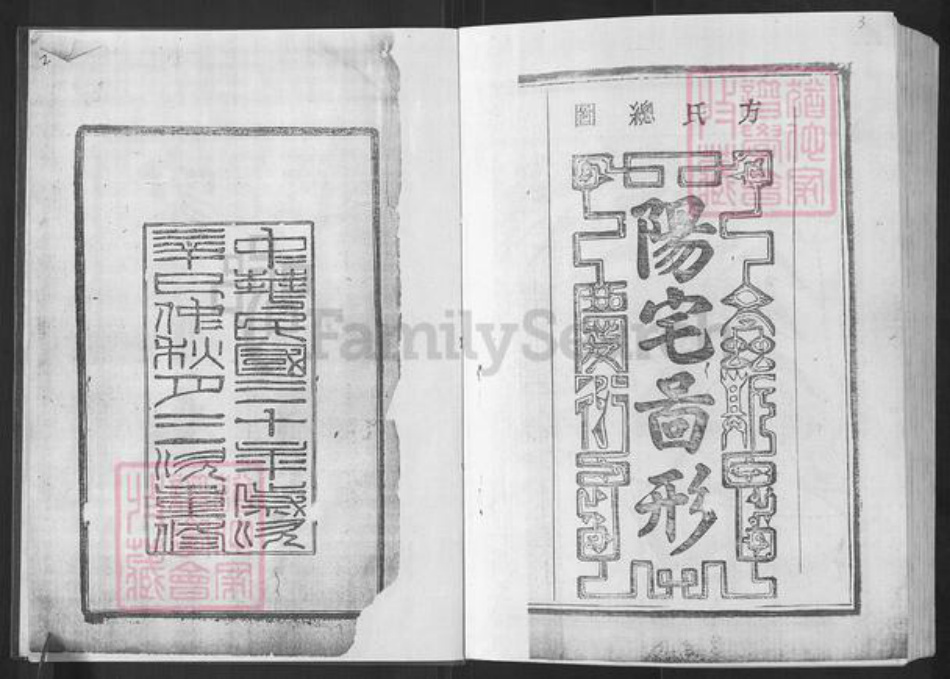 方氏總圖
陽宅啚形
中華民國三十年歲次
辛巳仲秋月三次重修
FamilySearch
2
3